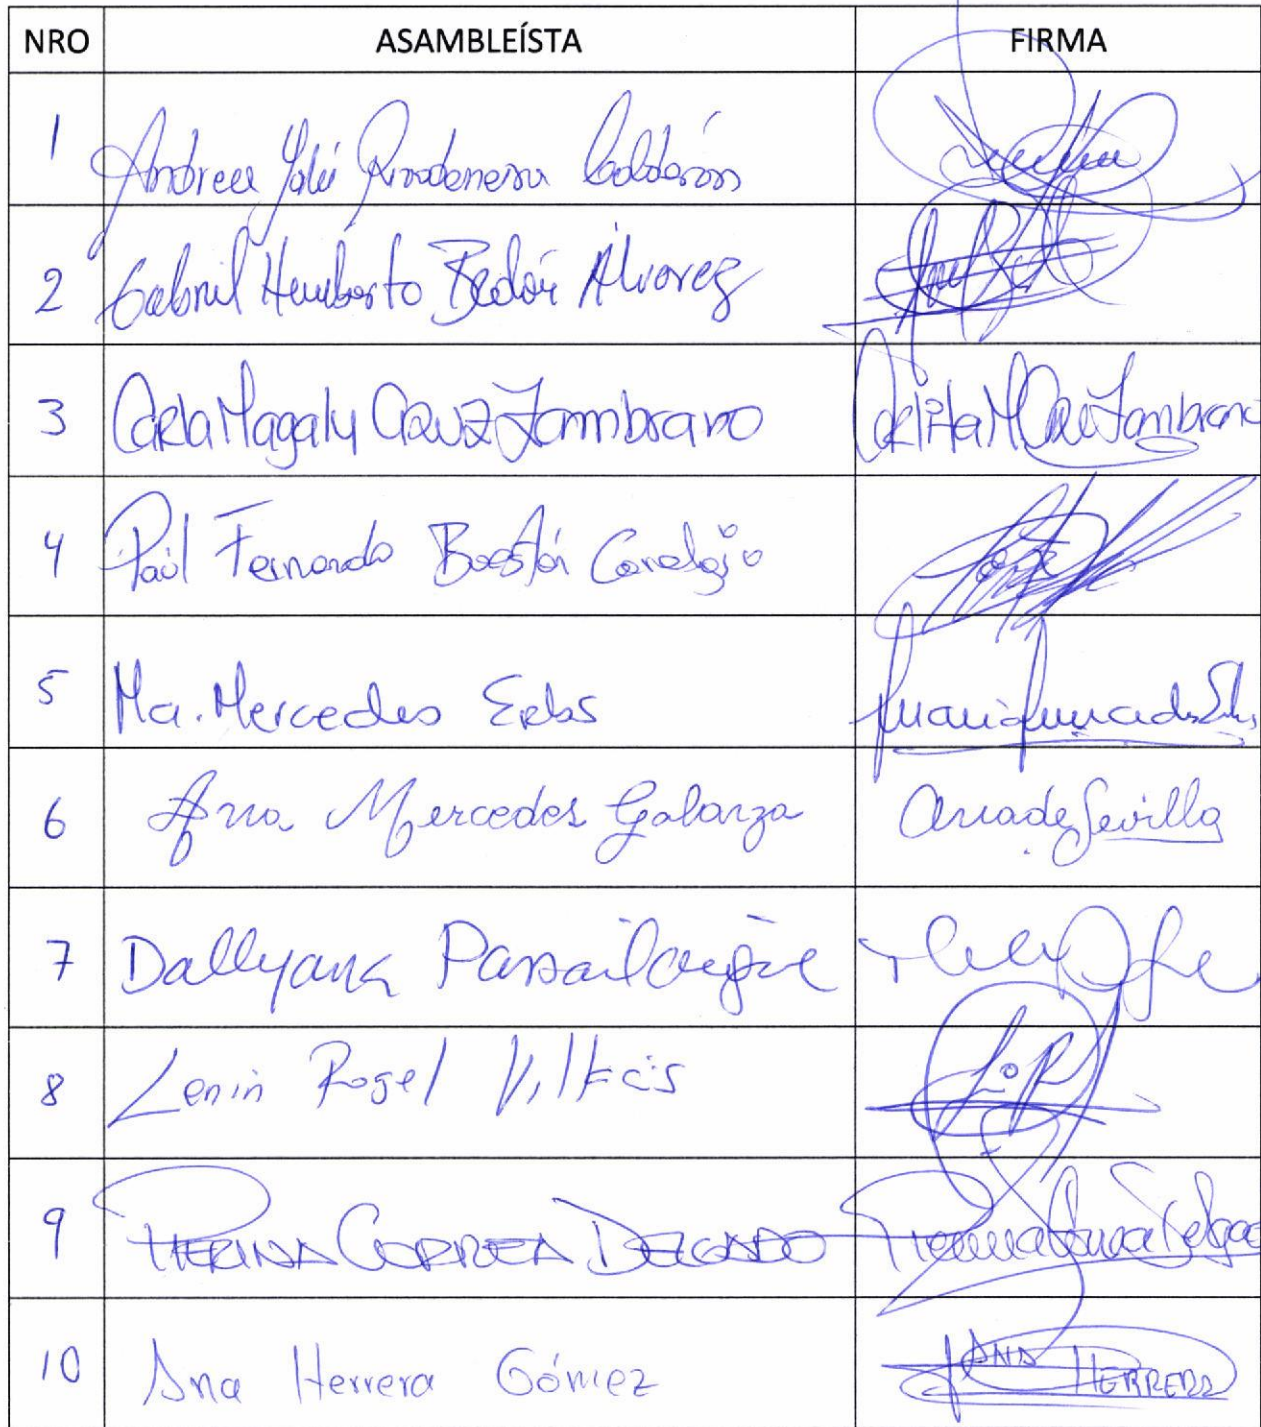 NRO ASAMBLEÍSTA FIRMA
1 Andrea Yalú Rivadeneira Calderón
2 Gabriel Humberto Bedón Álvarez
3 Carla Magaly Cruz Zambrano Carlita M Cruz Zambrano
4 Paúl Fernando Buestán Carabajo
5 Ma. Mercedes Erbs
6 Ana Mercedes Galarza Ana de Sevilla
7 Dallyana Passailaigue
8 Lenin Rogel Villacís L.R
9 PIERINA CORREA DELGADO Pierina Correa Delgado
10 Ana Herrera Gómez ANA HERRERA